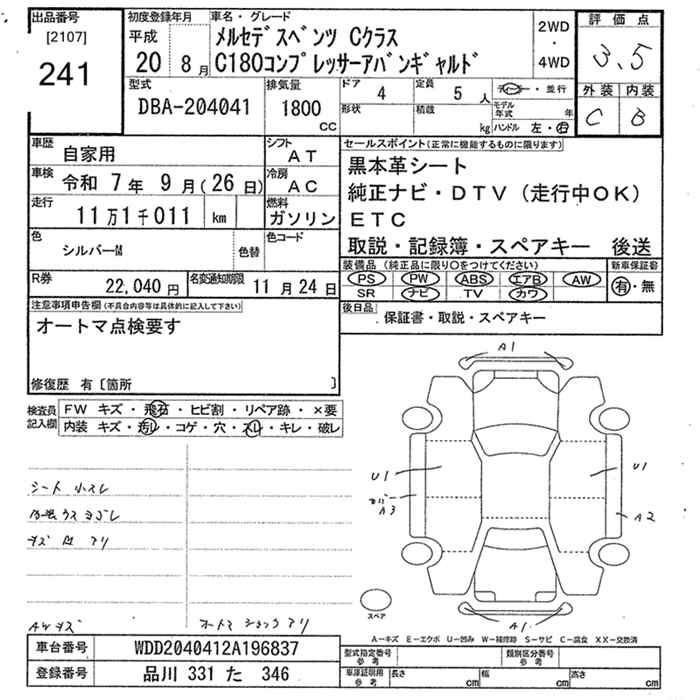 出品番号 初度登録年月 車名・グレード 2WD・4WD 評価点
[2107] 平成 メルセデスベンツ Cクラス
241 20 8月 C180コンプレッサーアバンギャルド 3.5
型式 排気量 ドア 4 定員 5人 ・並行 外装 内装
DBA-204041 1800cc 形状 積載 kg モデル年式 年 C B
ハンドル 左・右
車歴 自家用 シフト AT セールスポイント(正常に機能するものに限ります)
車検 令和 7年 9月(26日) 冷房 AC 黒本革シート
走行 11万1千011 km 燃料 ガソリン 純正ナビ・DTV(走行中OK)
ETC
色 シルバーM 色替 色コード 取説・記録簿・スペアキー 後送
R券 22,040円 名変通知期限 11月24日 装備品(純正品に限り○をつけてください) 新車保証書
PS PW ABS エアB AW 有・無
SR ナビ TV カワ
注意事項申告欄(不具合内容等は具体的に記入して下さい) 後日品 保証書・取説・スペアキー
オートマ点検要す
修復歴 有〔箇所 〕
検査員記入欄 FW キズ・飛石・ヒビ割・リペア跡・×要
内装 キズ・汚レ・コゲ・穴・スレ・キレ・破レ
A1
U1 U1
A3 A2
シート 小スレ
内張ウスヨゴレ
キズ 凹 アリ
AWキズ オートマ ショック アリ
スペア A1
A-キズ E-エクボ U-凹み W-補修跡 S-サビ C-腐食 XX-交換済
車台番号 WDD2040412A196837 型式指定番号 参考 類別区分番号 参考
登録番号 品川 331 た 346 車庫証明用 参考 長さ cm 幅 cm 高さ cm